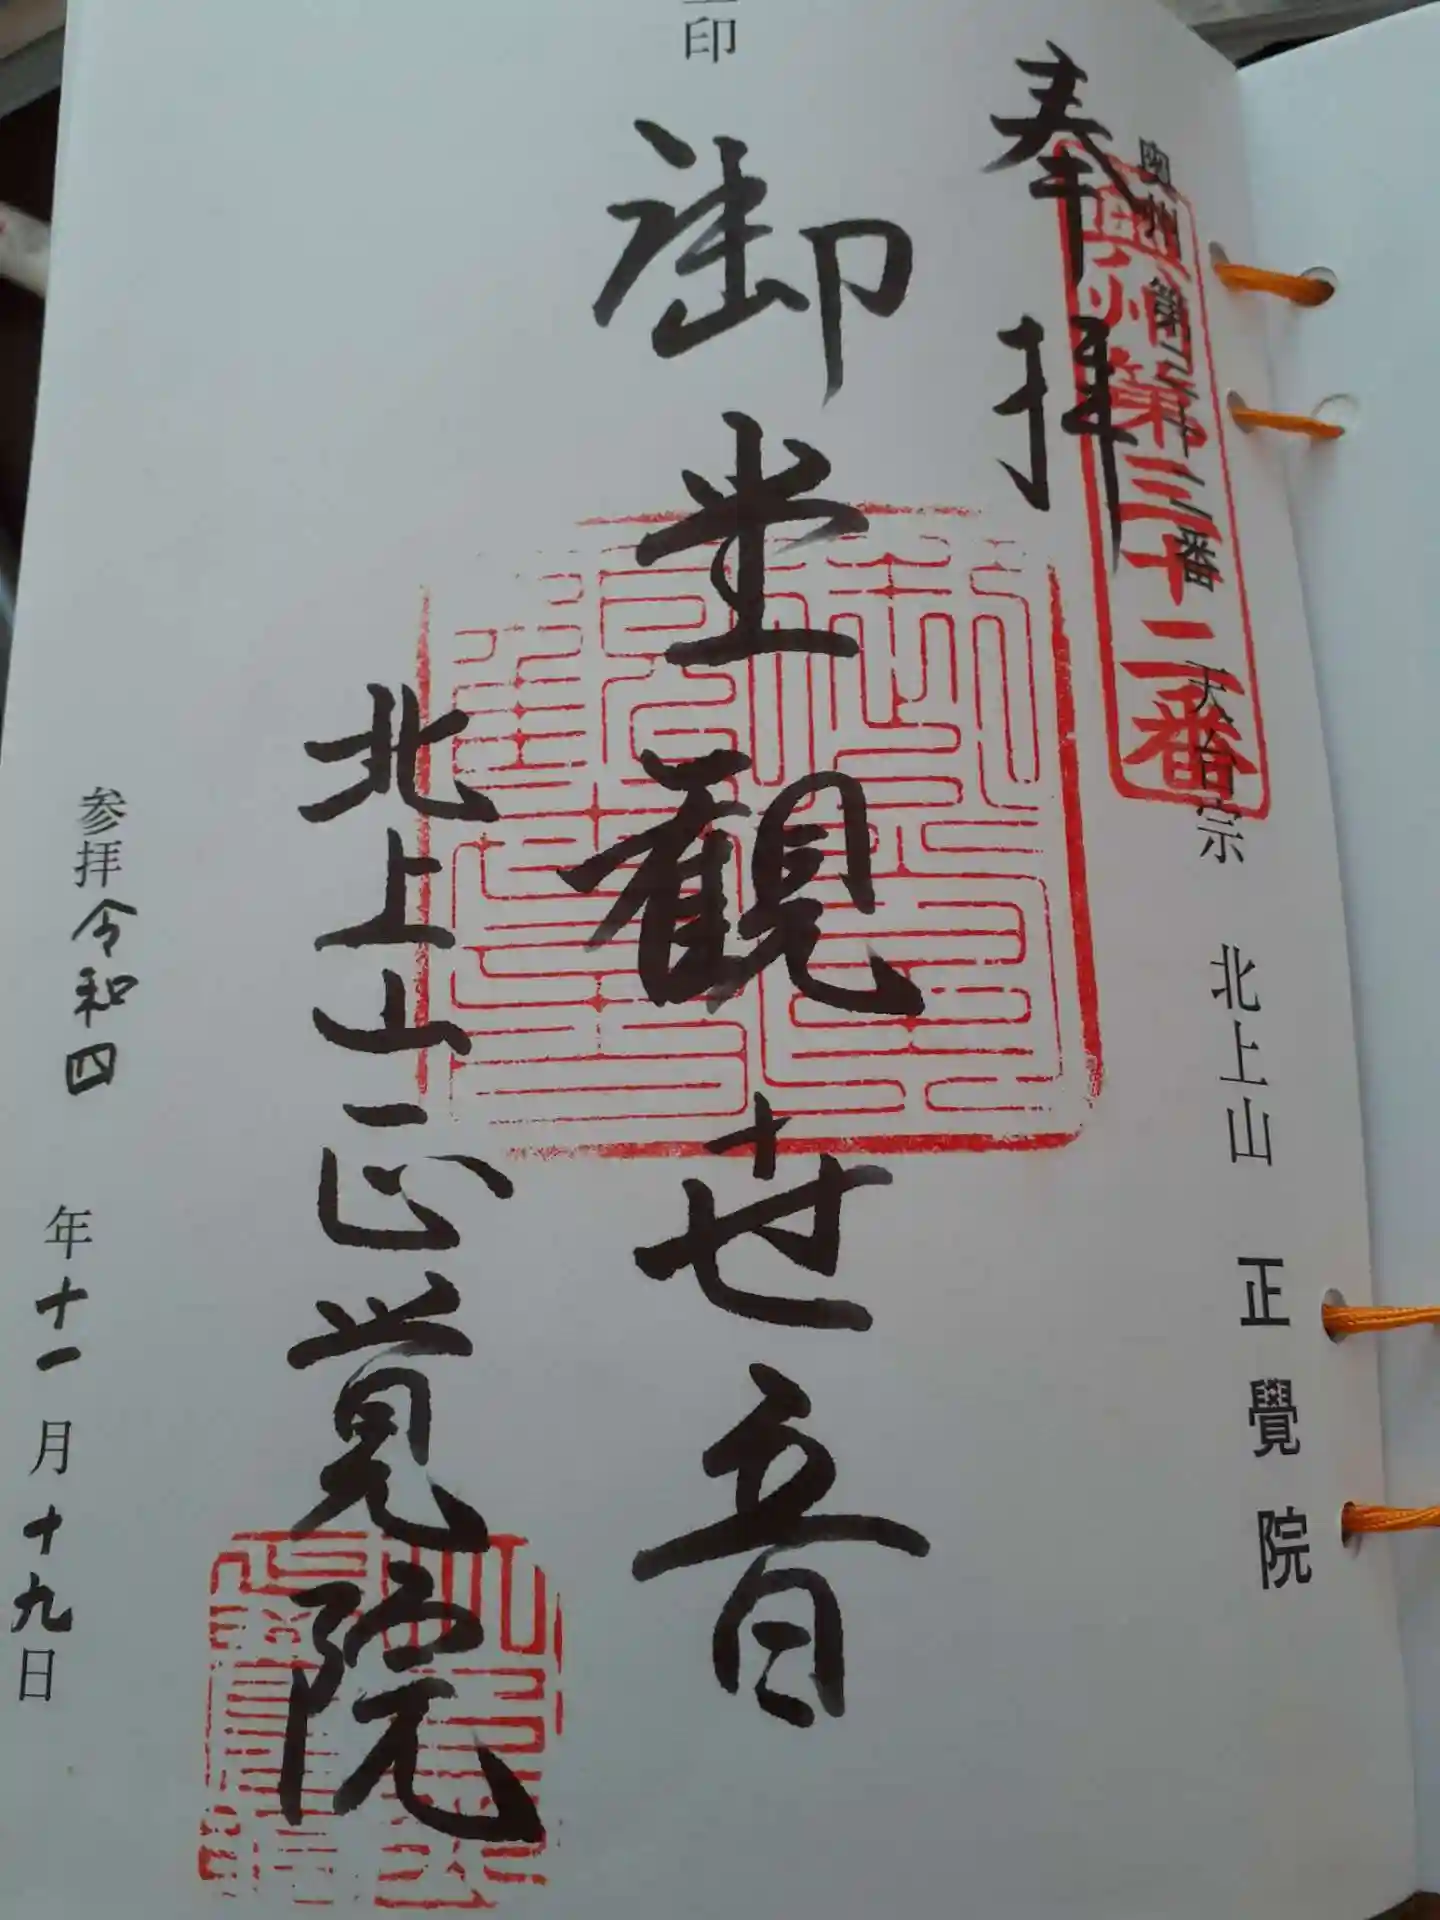 奥州第三十二番 天台宗 北上山 正覺院
奥州第三十二番
奉拝
印
御堂観世音
北上山正覚院
参拝令和四年十一月十九日